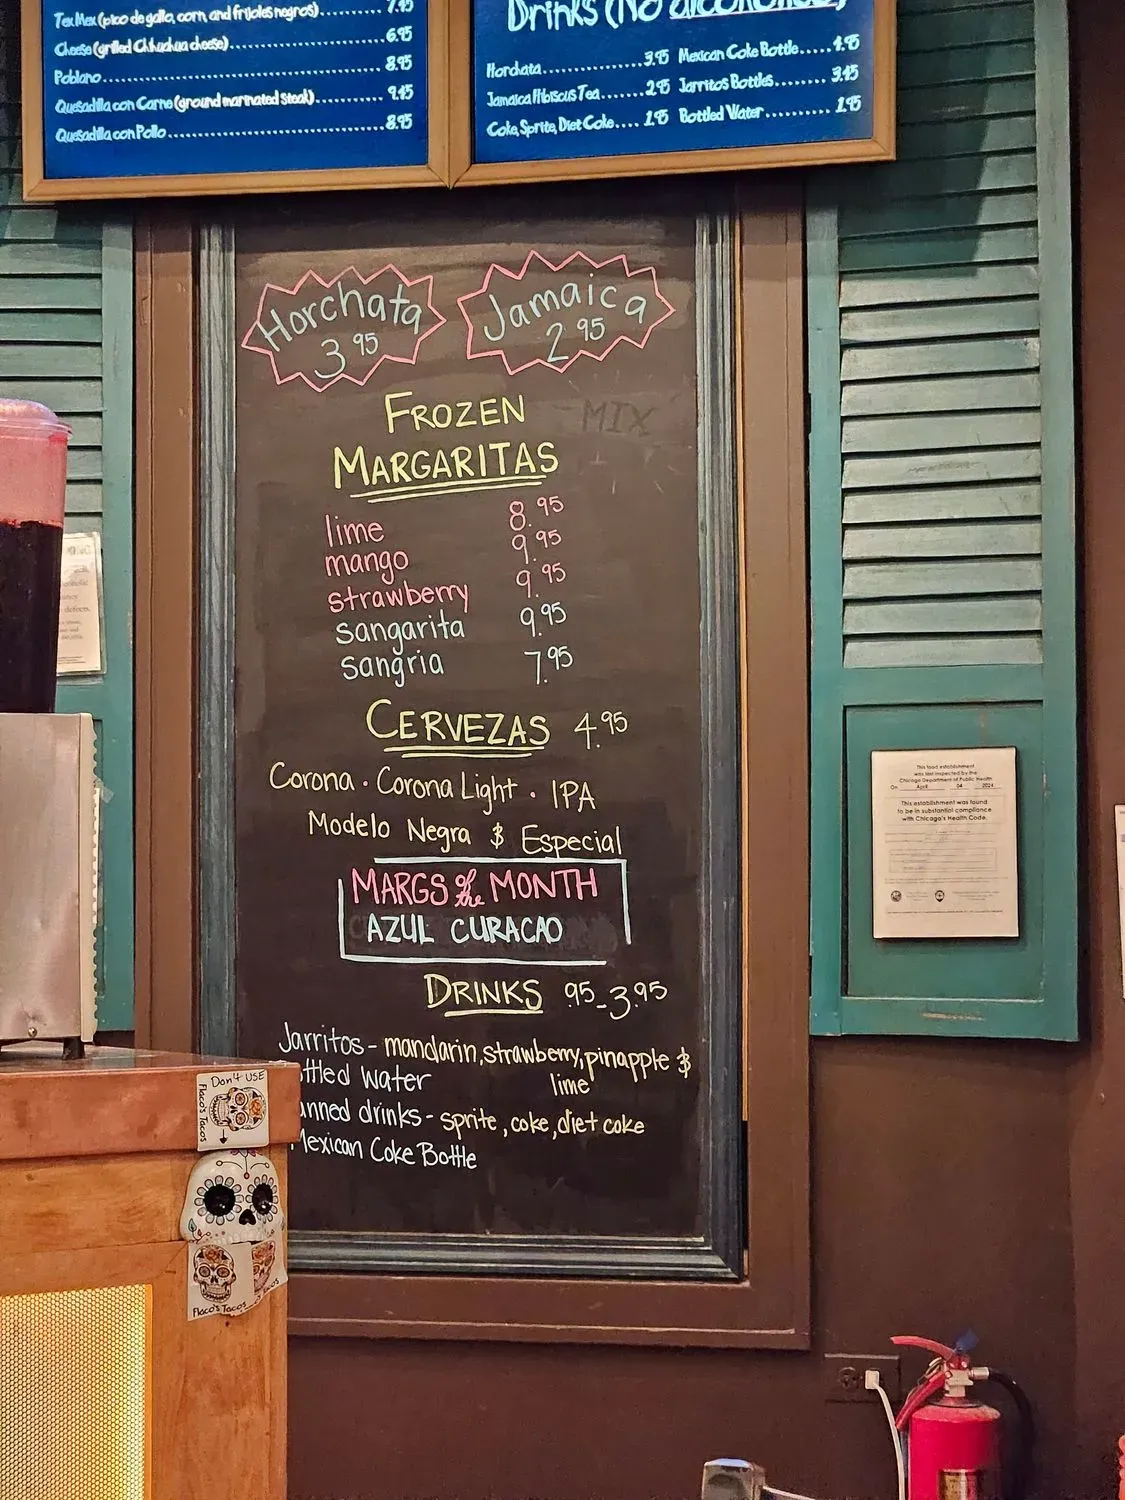 Tex Mex (pico de gallo, corn, and frijoles negros) 7.45
Cheese (grilled Chihuahua cheese) 6.95
Poblano 8.95
Quesadilla con Carne (ground marinated steak) 9.45
Quesadilla con Pollo 8.95
Drinks (No alcoholics)
Horchata 3.95 Mexican Coke Bottle 4.95
Jamaica Hibiscus Tea 2.95 Jarritos Bottles 3.45
Coke, Sprite, Diet Coke 1.95 Bottled Water 1.95
Horchata
3 95
Jamaica
2 95
FROZEN
MIX
MARGARITAS
lime 8.95
mango 9.95
strawberry 9.95
sangarita 9.95
sangria 7.95
CERVEZAS 4.95
Corona · Corona Light · IPA
Modelo Negra $ Especial
MARGS of the MONTH
AZUL CURACAO
DRINKS .95-3.95
Jarritos - mandarin, strawberry, pinapple $
ttled water lime
anned drinks - sprite, coke, diet coke
Mexican Coke Bottle
Don't USE
Flaco's Tacos
Flaco's Tacos
This food establishment
was last inspected by the
Chicago Department of Public Health
On April 04 2024
This establishment was found
to be in substantial compliance
with Chicago's Health Code.